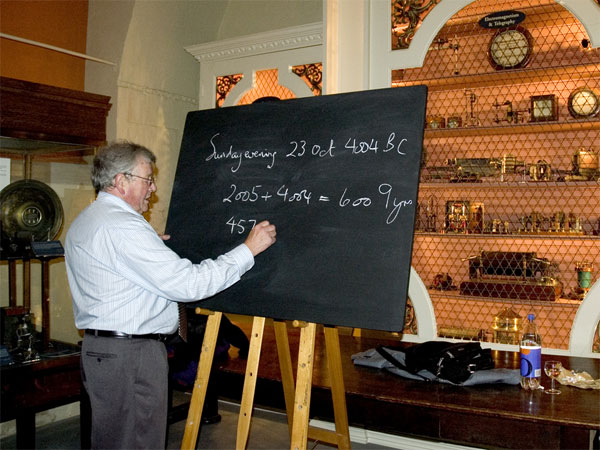 Electromagnetism
& Telegraphy
Sunday evening 23 Oct 4004 BC
2005 + 4004 = 6009 yrs
457